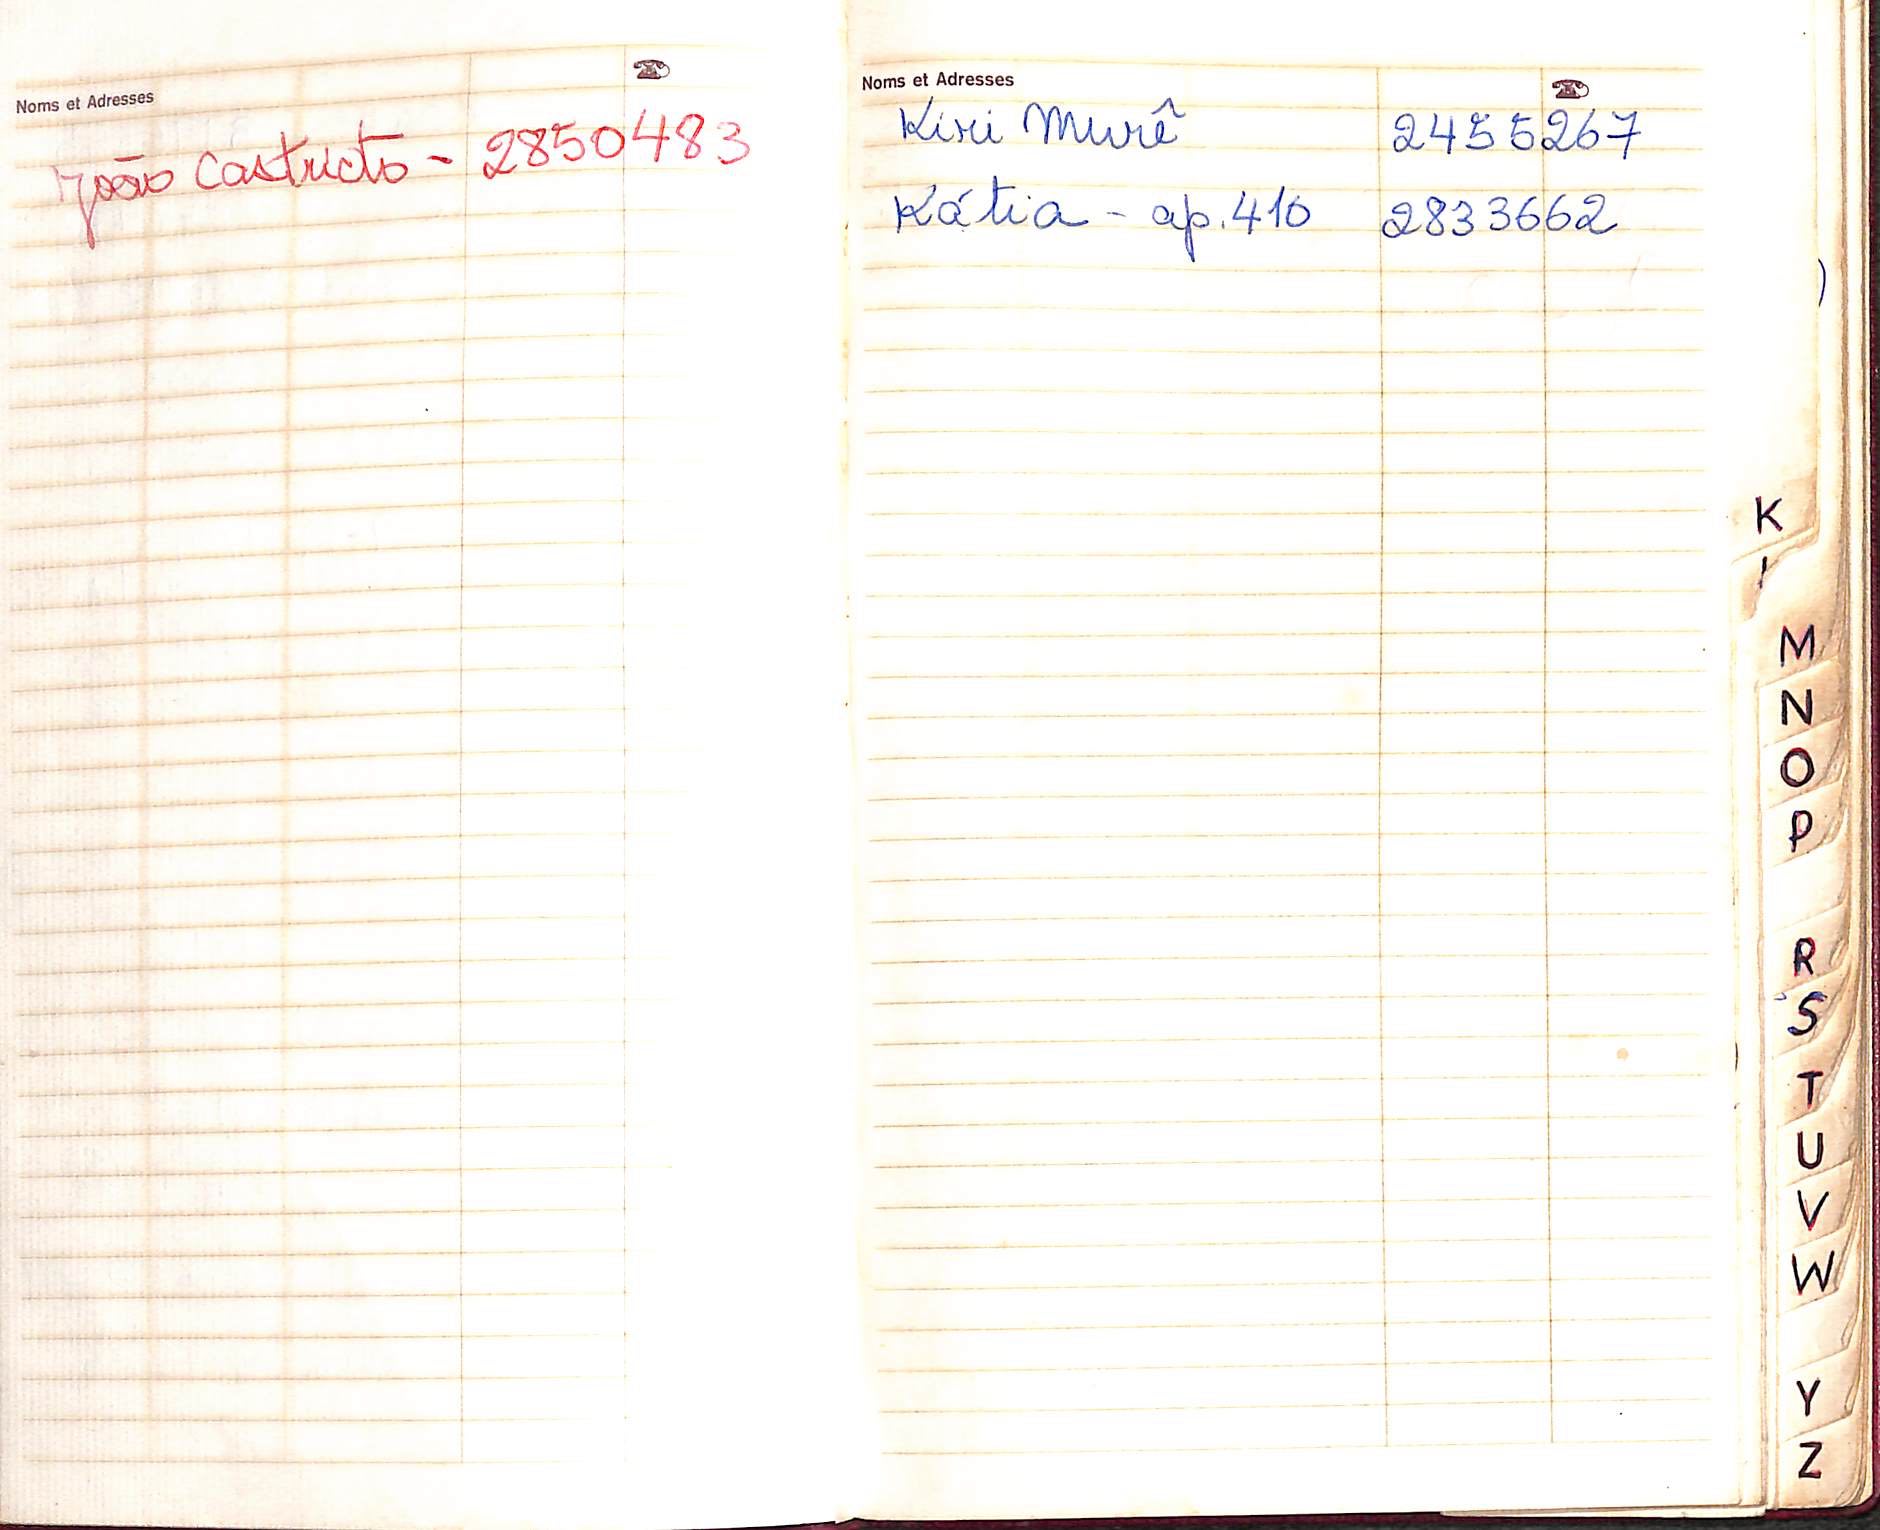 Noms et Adresses
João Castricto - 2850483
Noms et Adresses
Kiri Murê 2455267
Kátia - ap. 410 2833662
K
M
N
O
P
R
S
T
U
V
W
Y
Z